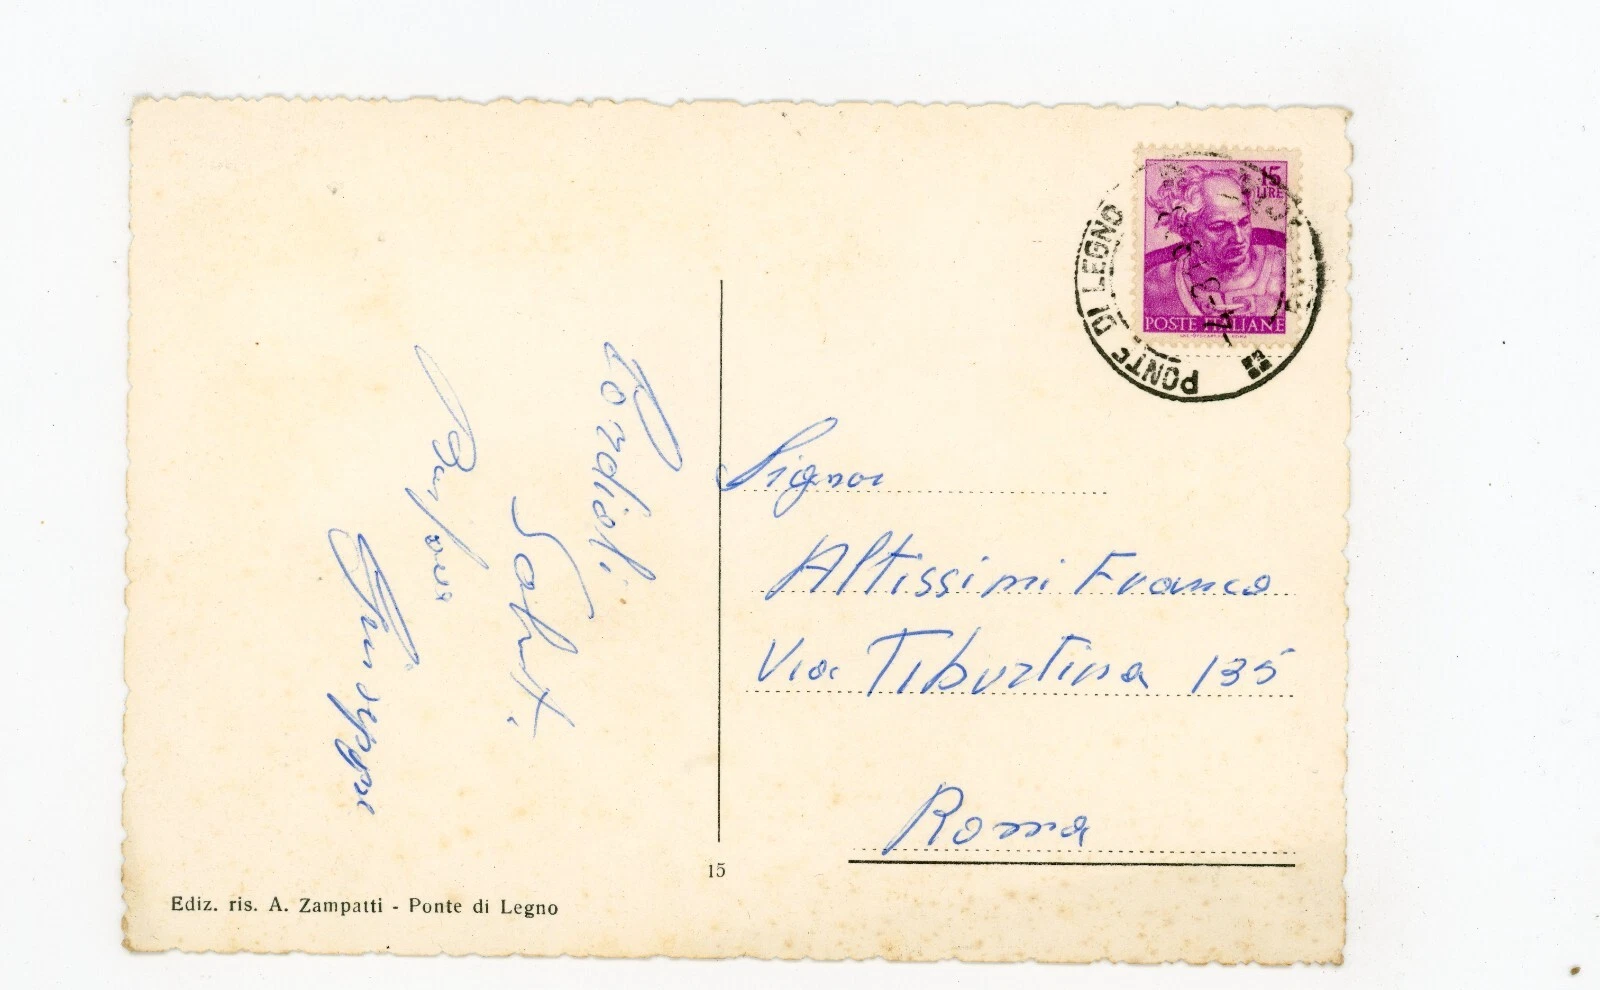 15
LIRE
POSTE ITALIANE
PONTE DI LEGNO
Cordiali
Saluti.
Giuseppe
Signor
Altissimi Franco
Via Tiburtina 135
Roma
15
Ediz. ris. A. Zampatti - Ponte di Legno